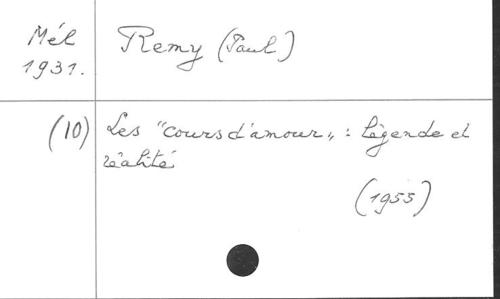 Mél
1931.
Remy (Paul)
(10)
Les "cours d'amour" : légende et
réalité
(1955)